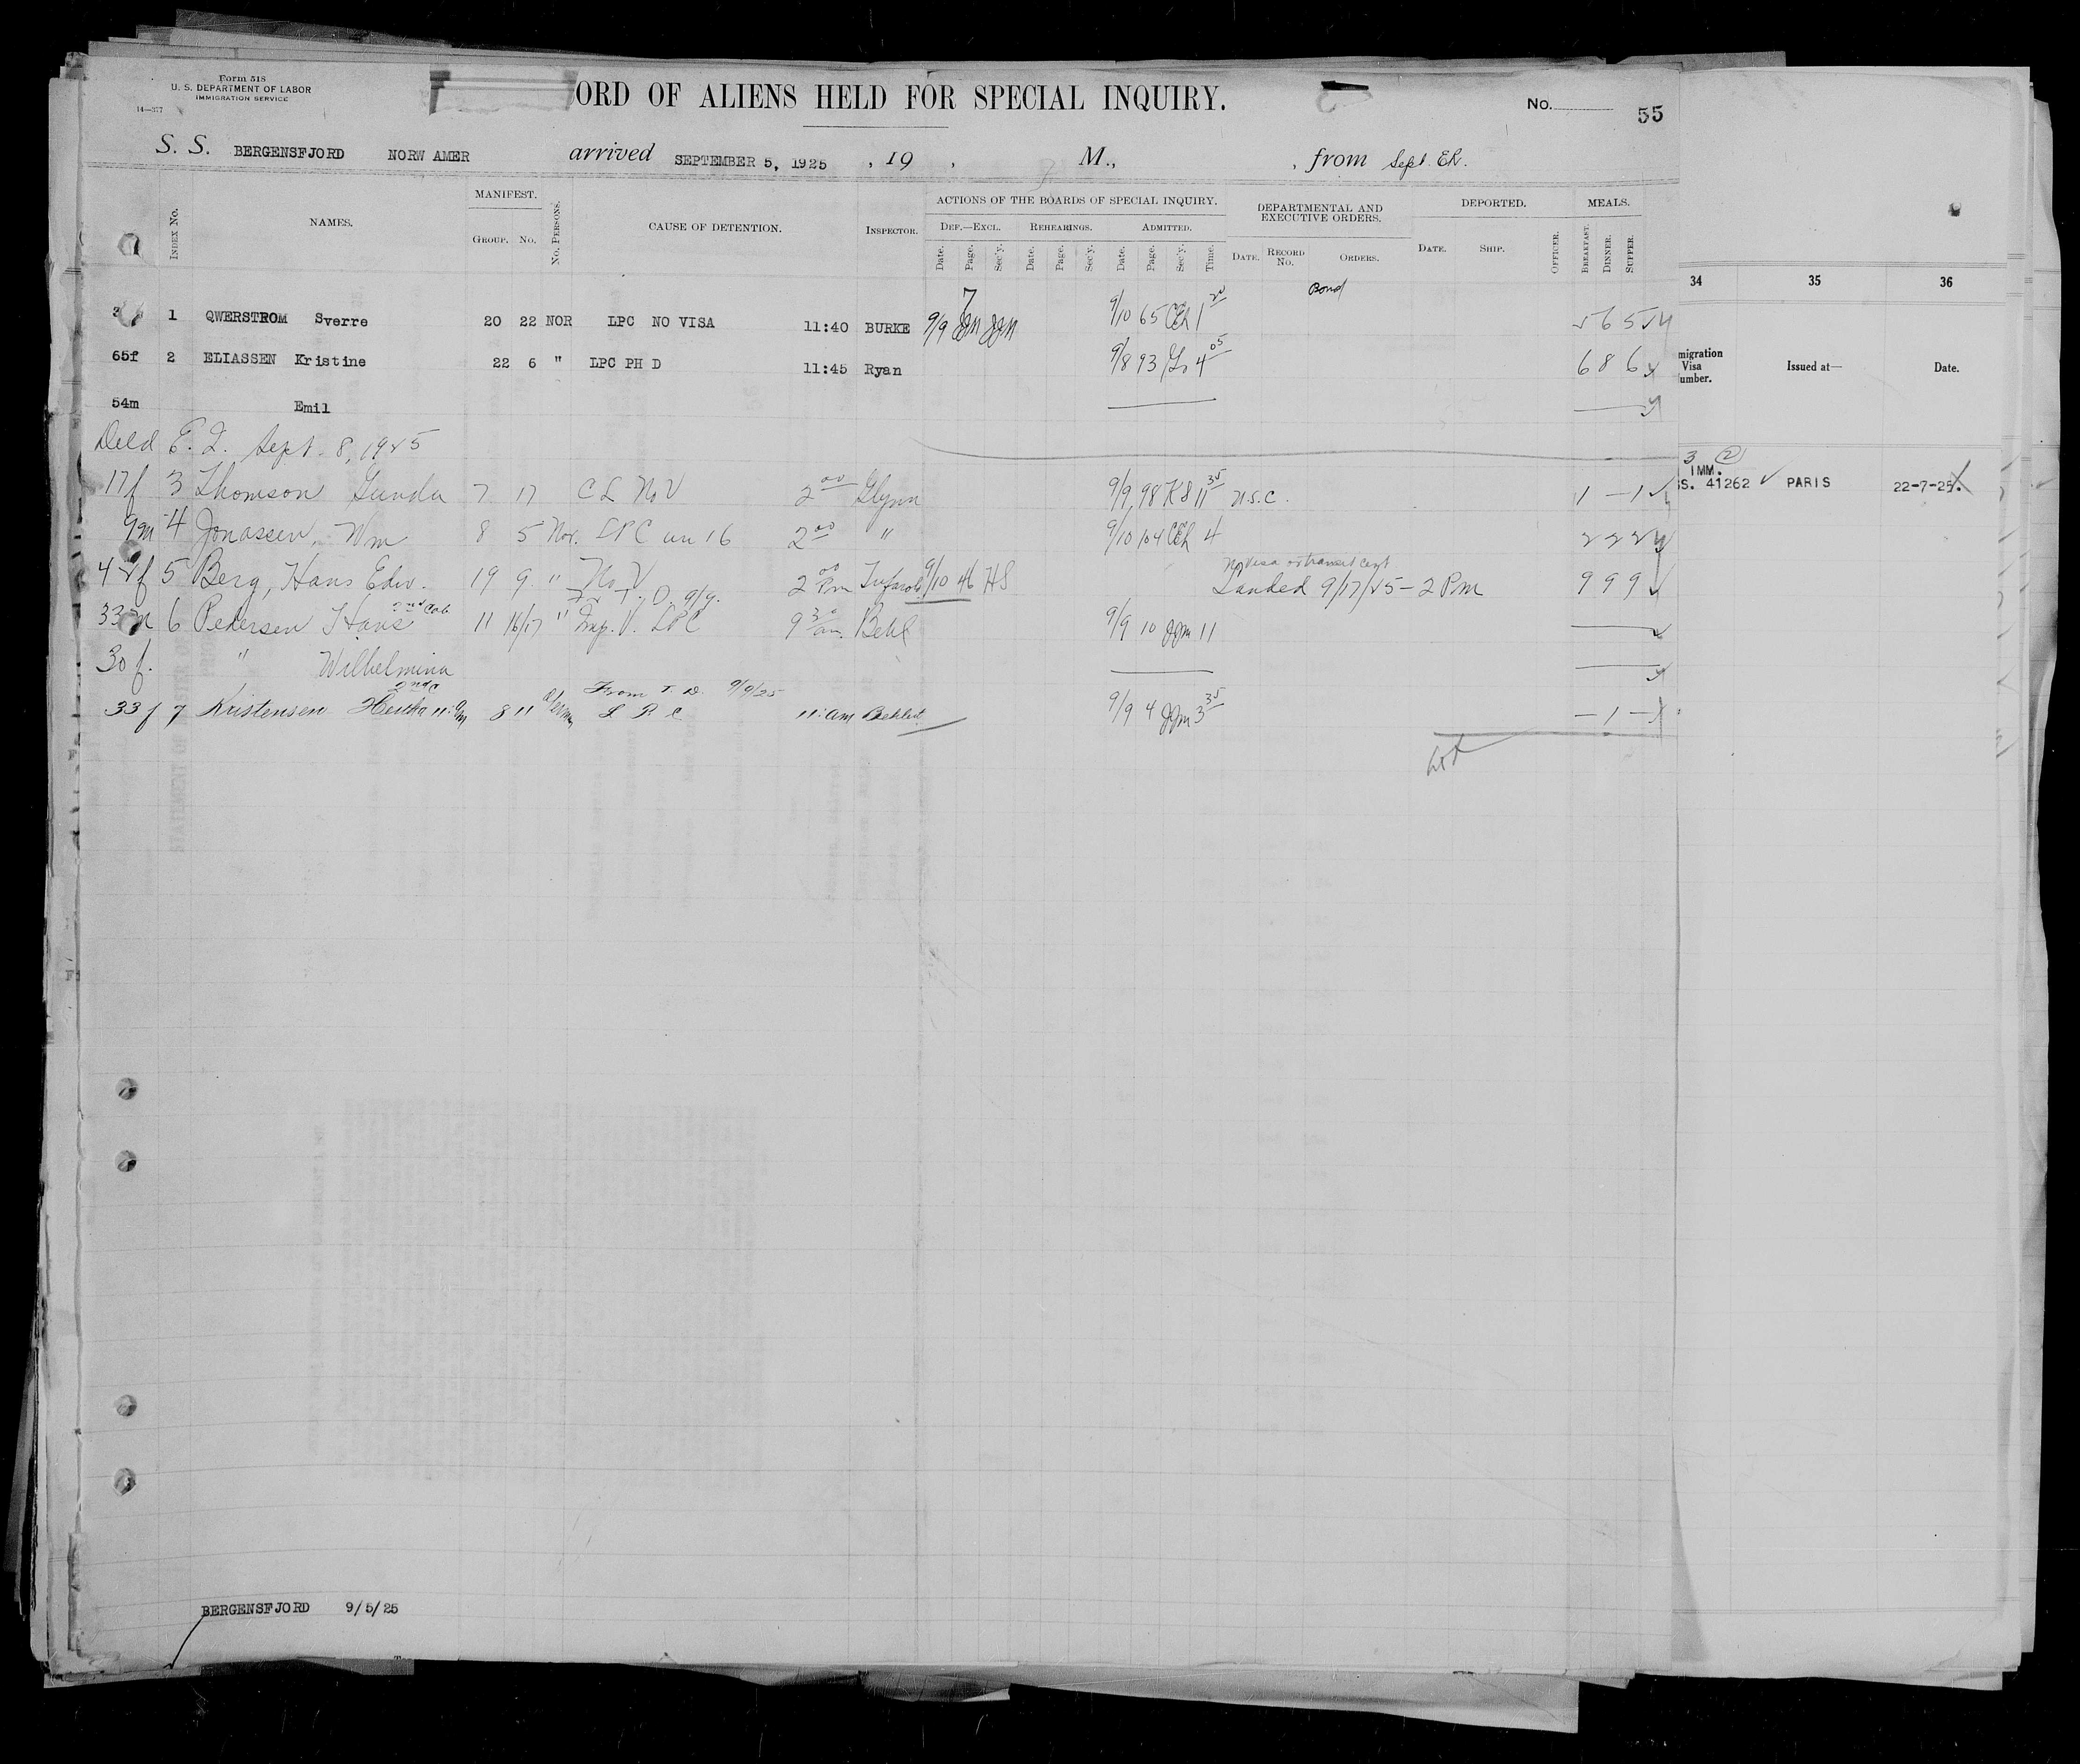 Form 518
U. S. DEPARTMENT OF LABOR
IMMIGRATION SERVICE
14—377
ORD OF ALIENS HELD FOR SPECIAL INQUIRY.
No.
55
S. S. BERGENSFJORD NORW AMER arrived SEPTEMBER 5, 1925 , 19 , M., , from Sept. Eh.
Index No. NAMES. MANIFEST. Group. No. No. Persons. CAUSE OF DETENTION. Inspector. ACTIONS OF THE BOARDS OF SPECIAL INQUIRY. DEPARTMENTAL AND EXECUTIVE ORDERS. DEPORTED. MEALS.
Def.—Excl. Rehearings. Admitted.
Date. Page. Sec'y. Date. Page. Sec'y. Date. Page. Sec'y. Time. Date. Record No. Orders. Date. Ship. Officer. Breakfast. Dinner. Supper.
Bond
1 QWERSTROM Sverre 20 22 NOR LPC NO VISA 11:40 BURKE 9/9 7 JJM 9/10 65 CEh 1 20 5 6 5
65f 2 ELIASSEN Kristine 22 6 " LPC PH D 11:45 Ryan 9/8 93 4 05 6 8 6
54m Emil
Deld E. I. Sept. 8, 1925
17f 3 Thomson Gunda 7 17 C L No V 2 00 Glynn 9/9 98 K8 11 35 U.S.C. 1 — 1
9m 4 Jonassen, Wm 8 5 Nor. LPC un 16 2 00 " 9/10 104 CEh 4 2 2 2
42f 5 Berg, Hans Edw. 19 9 " No V 2 00 Pm 9/10 46 HS No visa or transit cert
Landed 9/17/25 – 2 Pm 9 9 9
Fr T. D. 9/9.
33m 6 Pedersen Hans 2nd Cab 11 16/17 " Imp. V. LPC 9 30 am. Behl 9/9 10 JJM 11
30 f. " Wilhelmina
From T. D. 9/9/25
33 f 7 Kristensen Hertha 2nd C 8 11 L P C 11:am 9/9 4 JJM 3 35 — 1 —
BERGENSFJORD 9/5/25
34 35 36
migration Visa umber. Issued at— Date.
3 2
IMM.
S. 41262 PARIS 22-7-25.